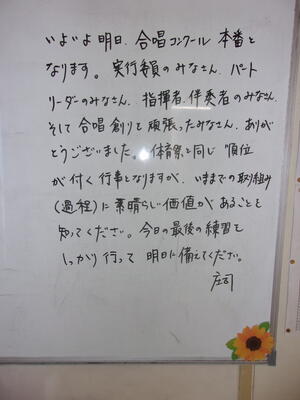 いよいよ明日、合唱コンクール本番と
なります。実行委員のみなさん、パート
リーダーのみなさん、指揮者、伴奏者のみなさん、
そして合唱創りを頑張ったみなさん、ありが
とうございました。体育祭と同じ順位
が付く行事となりますが、いままでの取り組み
(過程)に素晴らしい価値があることを
知ってください。今日の最後の練習を
しっかり行って明日に備えてください。
庄司